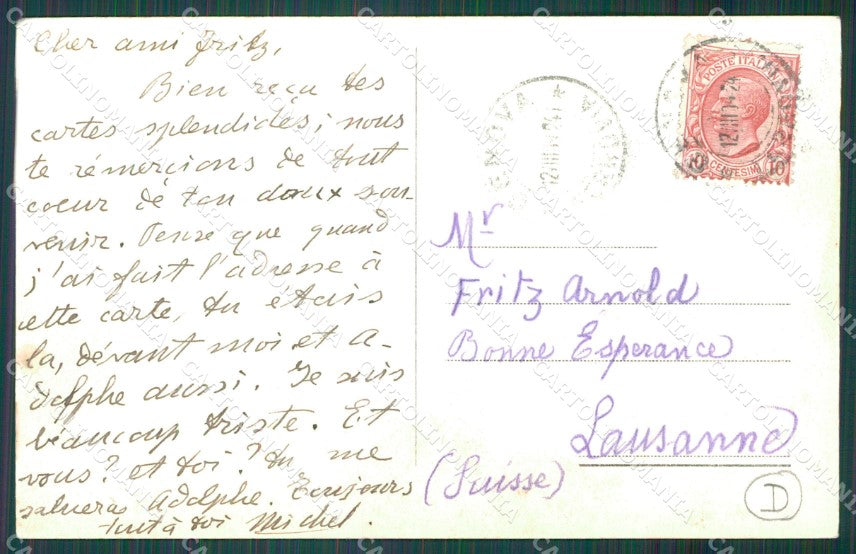 Cher ami Fritz,
Bien reçu tes
cartes splendides; nous
te rémercions de tout
coeur de ton doux sou-
venir. Pense que quand
j'ai fait l'adresse à
cette carte, tu étais
la, dévant moi et A-
dolphe aussi. Je suis
beaucoup triste. Et
vous? et toi? Tu me
saluera Adolphe. Toujours
tout à toi Michel.
POSTE ITALIANE
CENTESIMI 10
12.III.14-24
GENOVA
12.III.14-24
Mr
Fritz Arnold
Bonne Esperance
Lausanne
(Suisse)
D
CARTOLINOMANIA